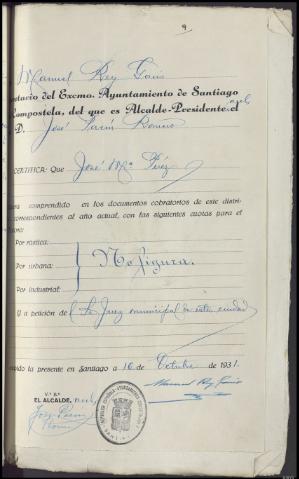 9
Manuel Rey
etario del Excmo. Ayuntamiento de Santiago
Compostela, del que es Alcalde-Presidente el
D. José
CERTIFICA: Que José Mª Pérez
comprendido en los documentos cobratorios de este distri-
correspondientes al año actual, con las siguientes cuotas para el
Por rústica:
Por urbana: No figura.
Por industrial:
a petición de el Juez municipal de esta ciudad
la presente en Santiago a 16 de Octubre de 1931.
V.º B.º
EL ALCALDE,
Manuel Rey
José